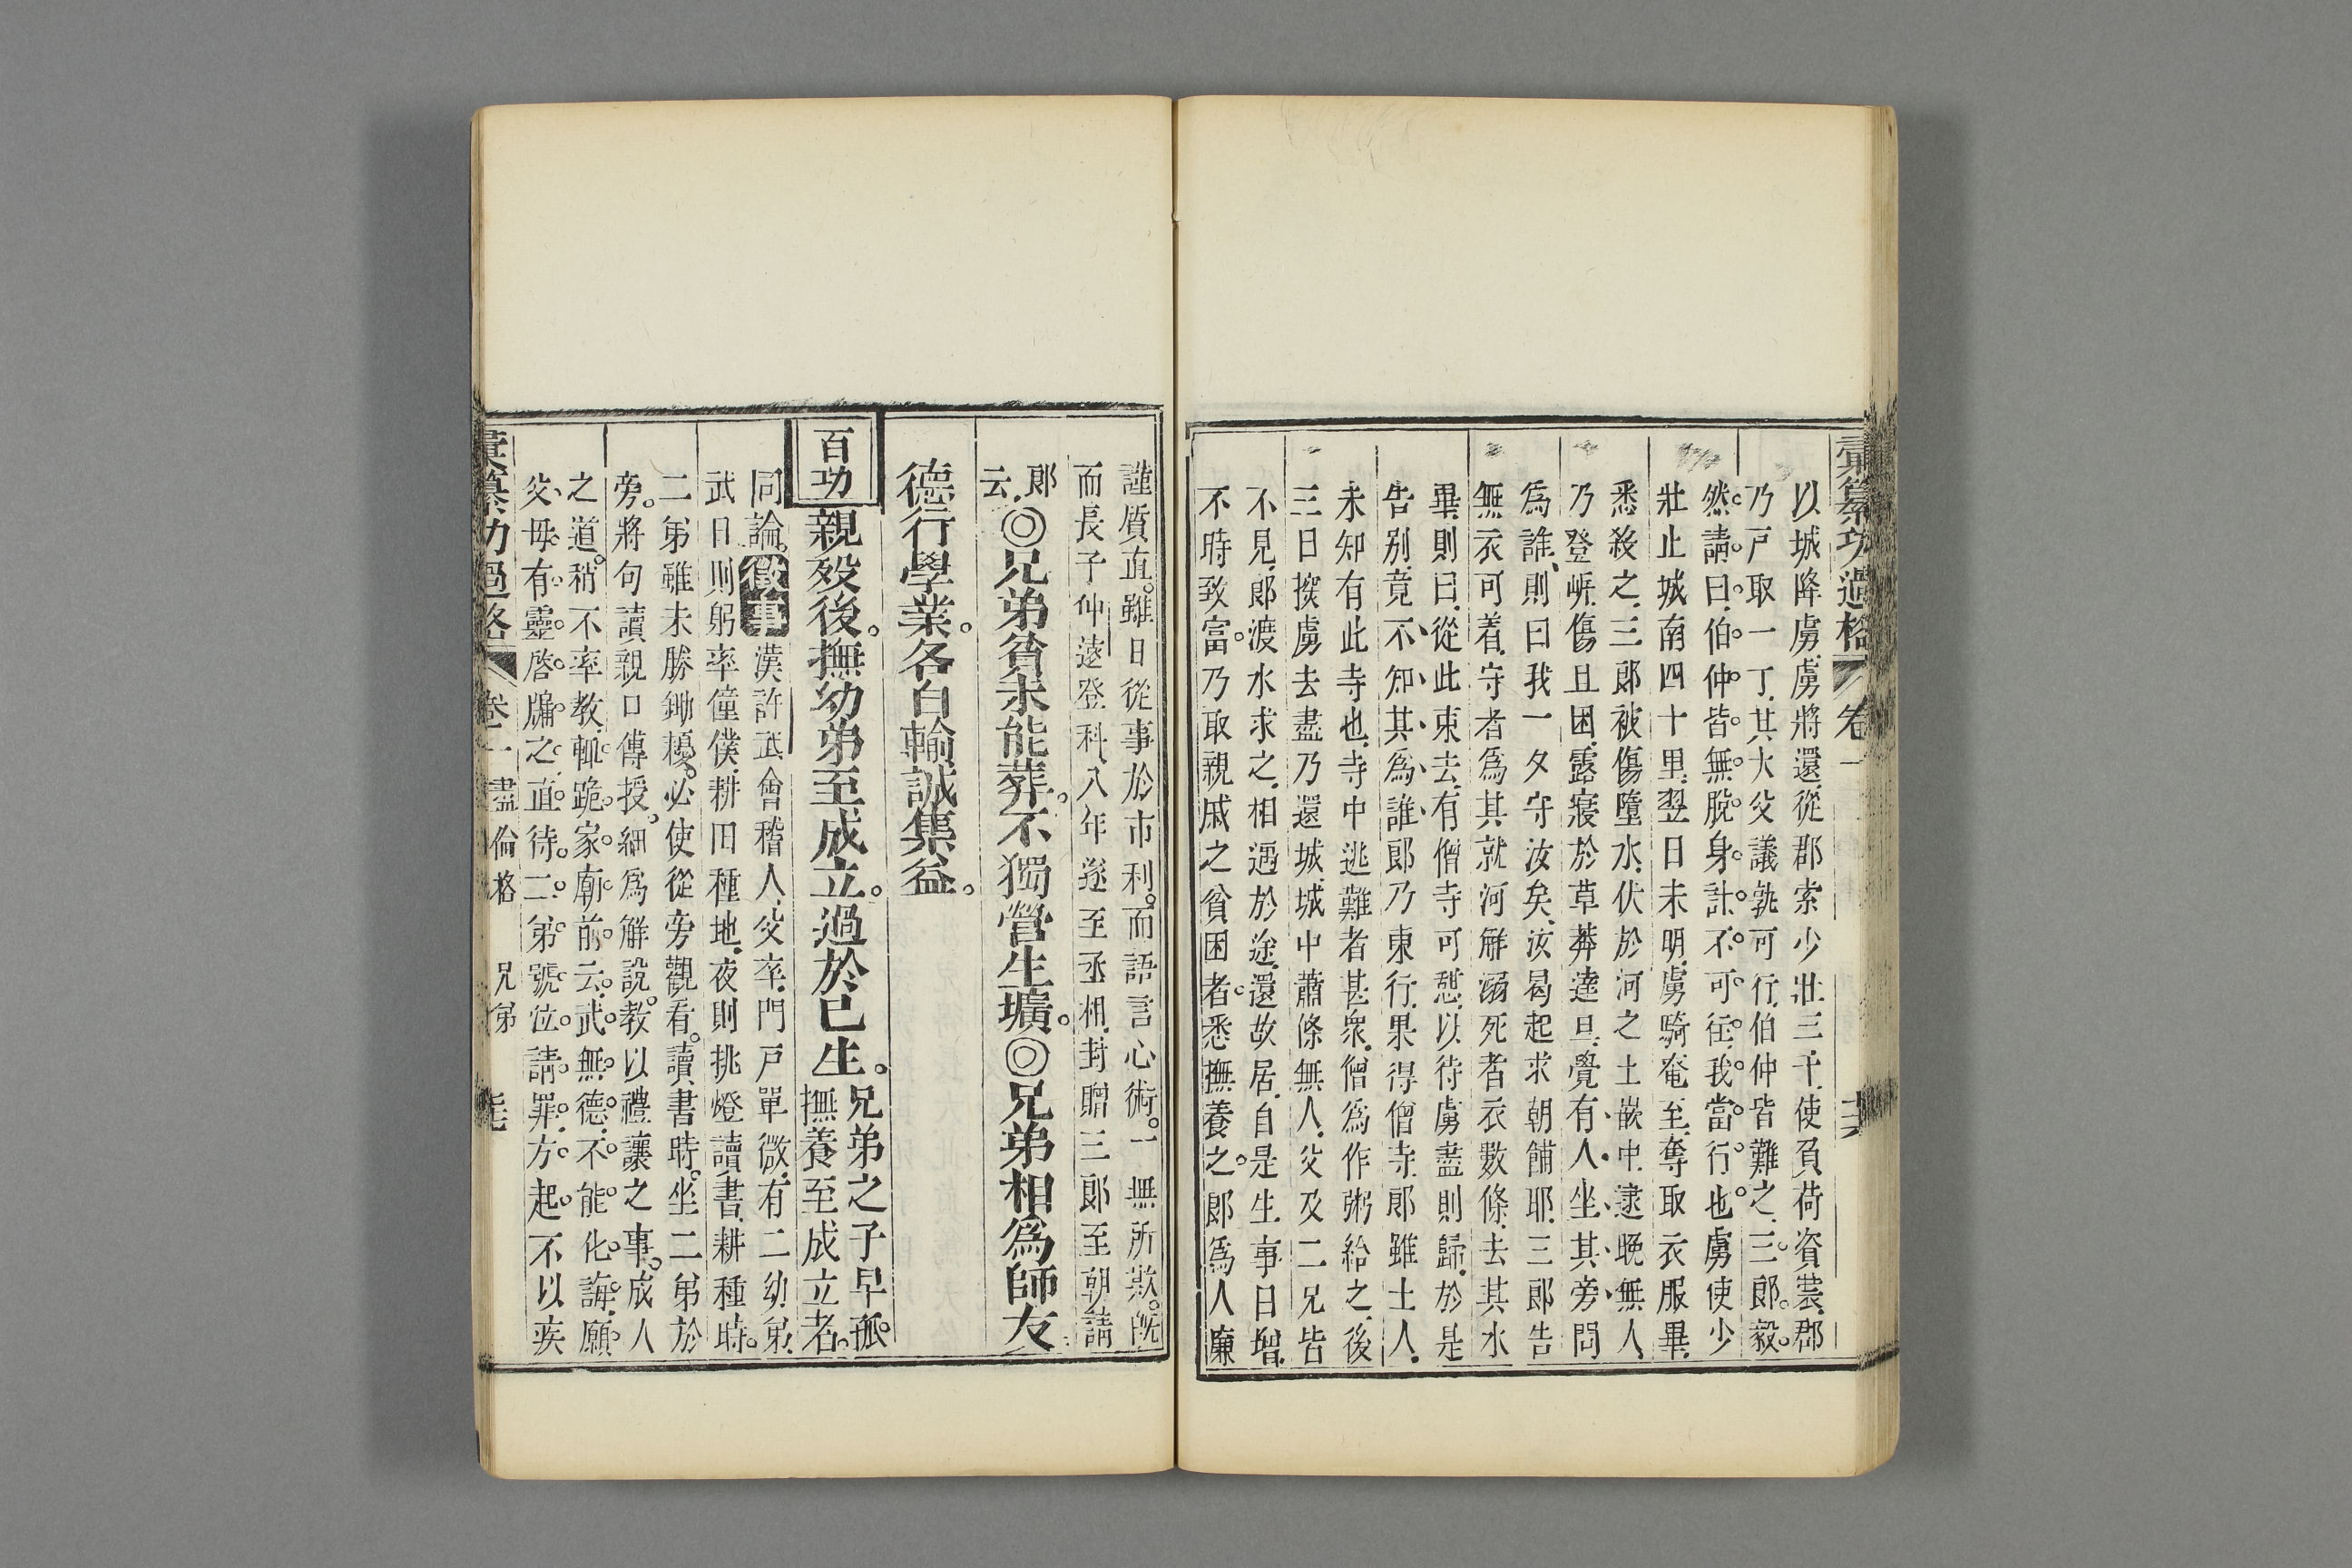 彙纂功過格 卷一
以城降虜虜將還從郡索少壯三千使負荷資裝郡
乃戸取一丁其大父議孰可行伯仲皆難之三郎毅
然請曰伯仲皆無脫身計不可往我當行也虜使少
壯止城南四十里翌日未明虜騎奄至奪取衣服畢
悉殺之三郎被傷墮水伏於河之土嵌中逮晚無人
乃登㟁傷且困露寢於草莽達旦覺有人坐其旁問
為誰則曰我一夕守汝矣汝曷起求朝餔耶三郎告
無衣可着守者為其就河解溺死者衣數條去其水
畢則曰從此東去有僧寺可憇以待虜盡則歸於是
告别竟不知其為誰郎乃東行果得僧寺郎雖土人
未知有此寺也寺中逃難者甚衆僧為作粥給之後
三日探虜去盡乃還城城中蕭條無人父及二兄皆
不見郎渡水求之相遇於途還故居自是生事日增
不時致富乃取親戚之貧困者悉撫養之郎為人廉
謹質直雖日從事於市利而語言心術一無所欺既
而長子仲遠登科八年遂至丞相封贈三郎至朝請
郎云◎兄弟貧未能葬不獨營生壙◎兄弟相為師友
德行學業各自輸誠集益
百功 親歿後撫幼弟至成立過於己生 兄弟之子早孤
撫養至成立者
同論 徵事 漢許武會稽人父卒門戸單微有二幼弟
武日則躬率僮僕耕田種地夜則挑燈讀書耕種時
二弟雖未勝鋤耰必使從旁觀看讀書時坐二弟於
旁將句讀親口傳授細為解說教以禮讓之事成人
之道稍不率教輒跪家廟前云武無德不能化誨願
父母有靈啓牖之直待二弟號泣請罪方起不以疾
彙纂功過格 卷一 盡倫格 兄弟